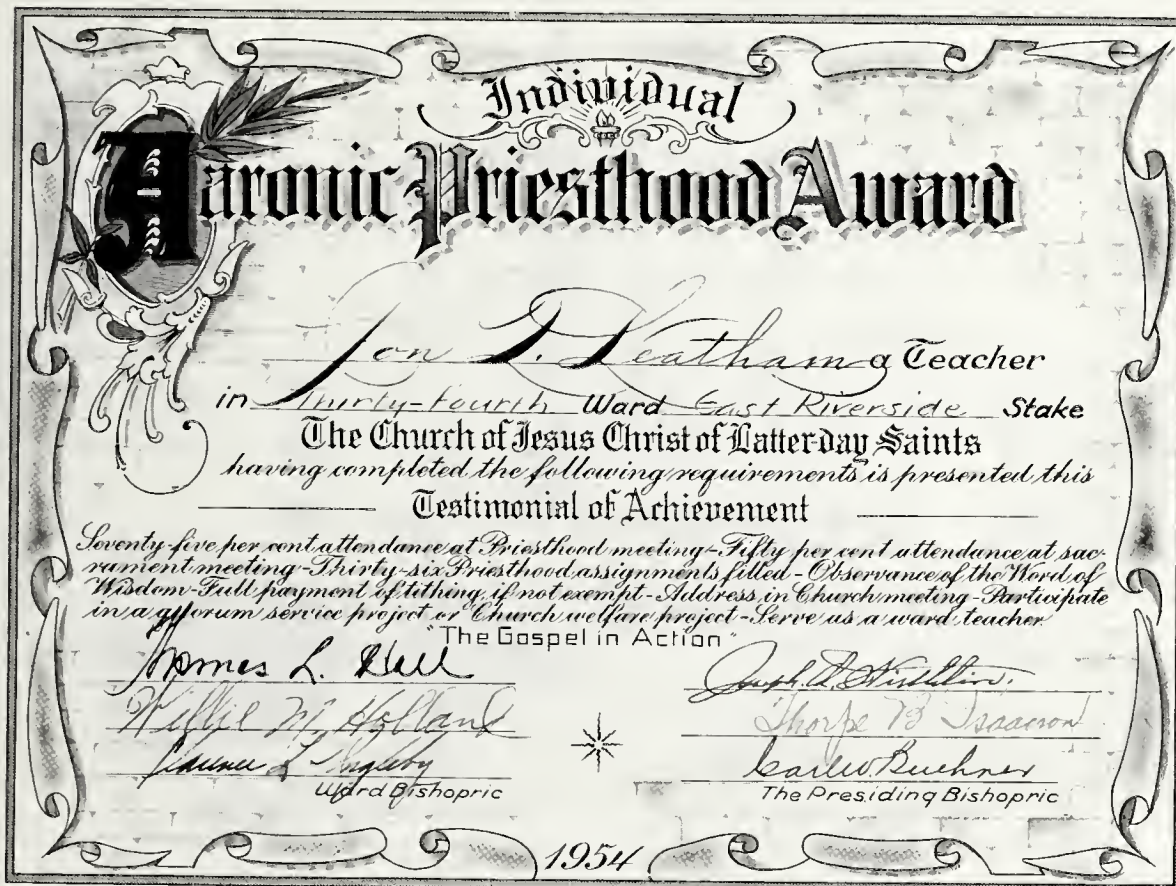 Individual
Aaronic Priesthood Award
Jon D. Leatham a Teacher
in Thirty-Fourth Ward East Riverside Stake
The Church of Jesus Christ of Latter-day Saints
having completed the following requirements is presented this
Testimonial of Achievement
Seventy-five per cent attendance at Priesthood meeting - Fifty per cent attendance at sac-
rament meeting - Thirty-six Priesthood assignments filled - Observance of the Word of
Wisdom - Full payment of tithing, if not exempt - Address in Church meeting - Participate
in a quorum service project or Church welfare project - Serve as a ward teacher
"The Gospel in Action"
L. Hall
Willie M. Holland
L
Ward Bishopric
Joseph L. Wirthlin.
Thorpe B Isaacson
Carl W. Buehner
The Presiding Bishopric
1954